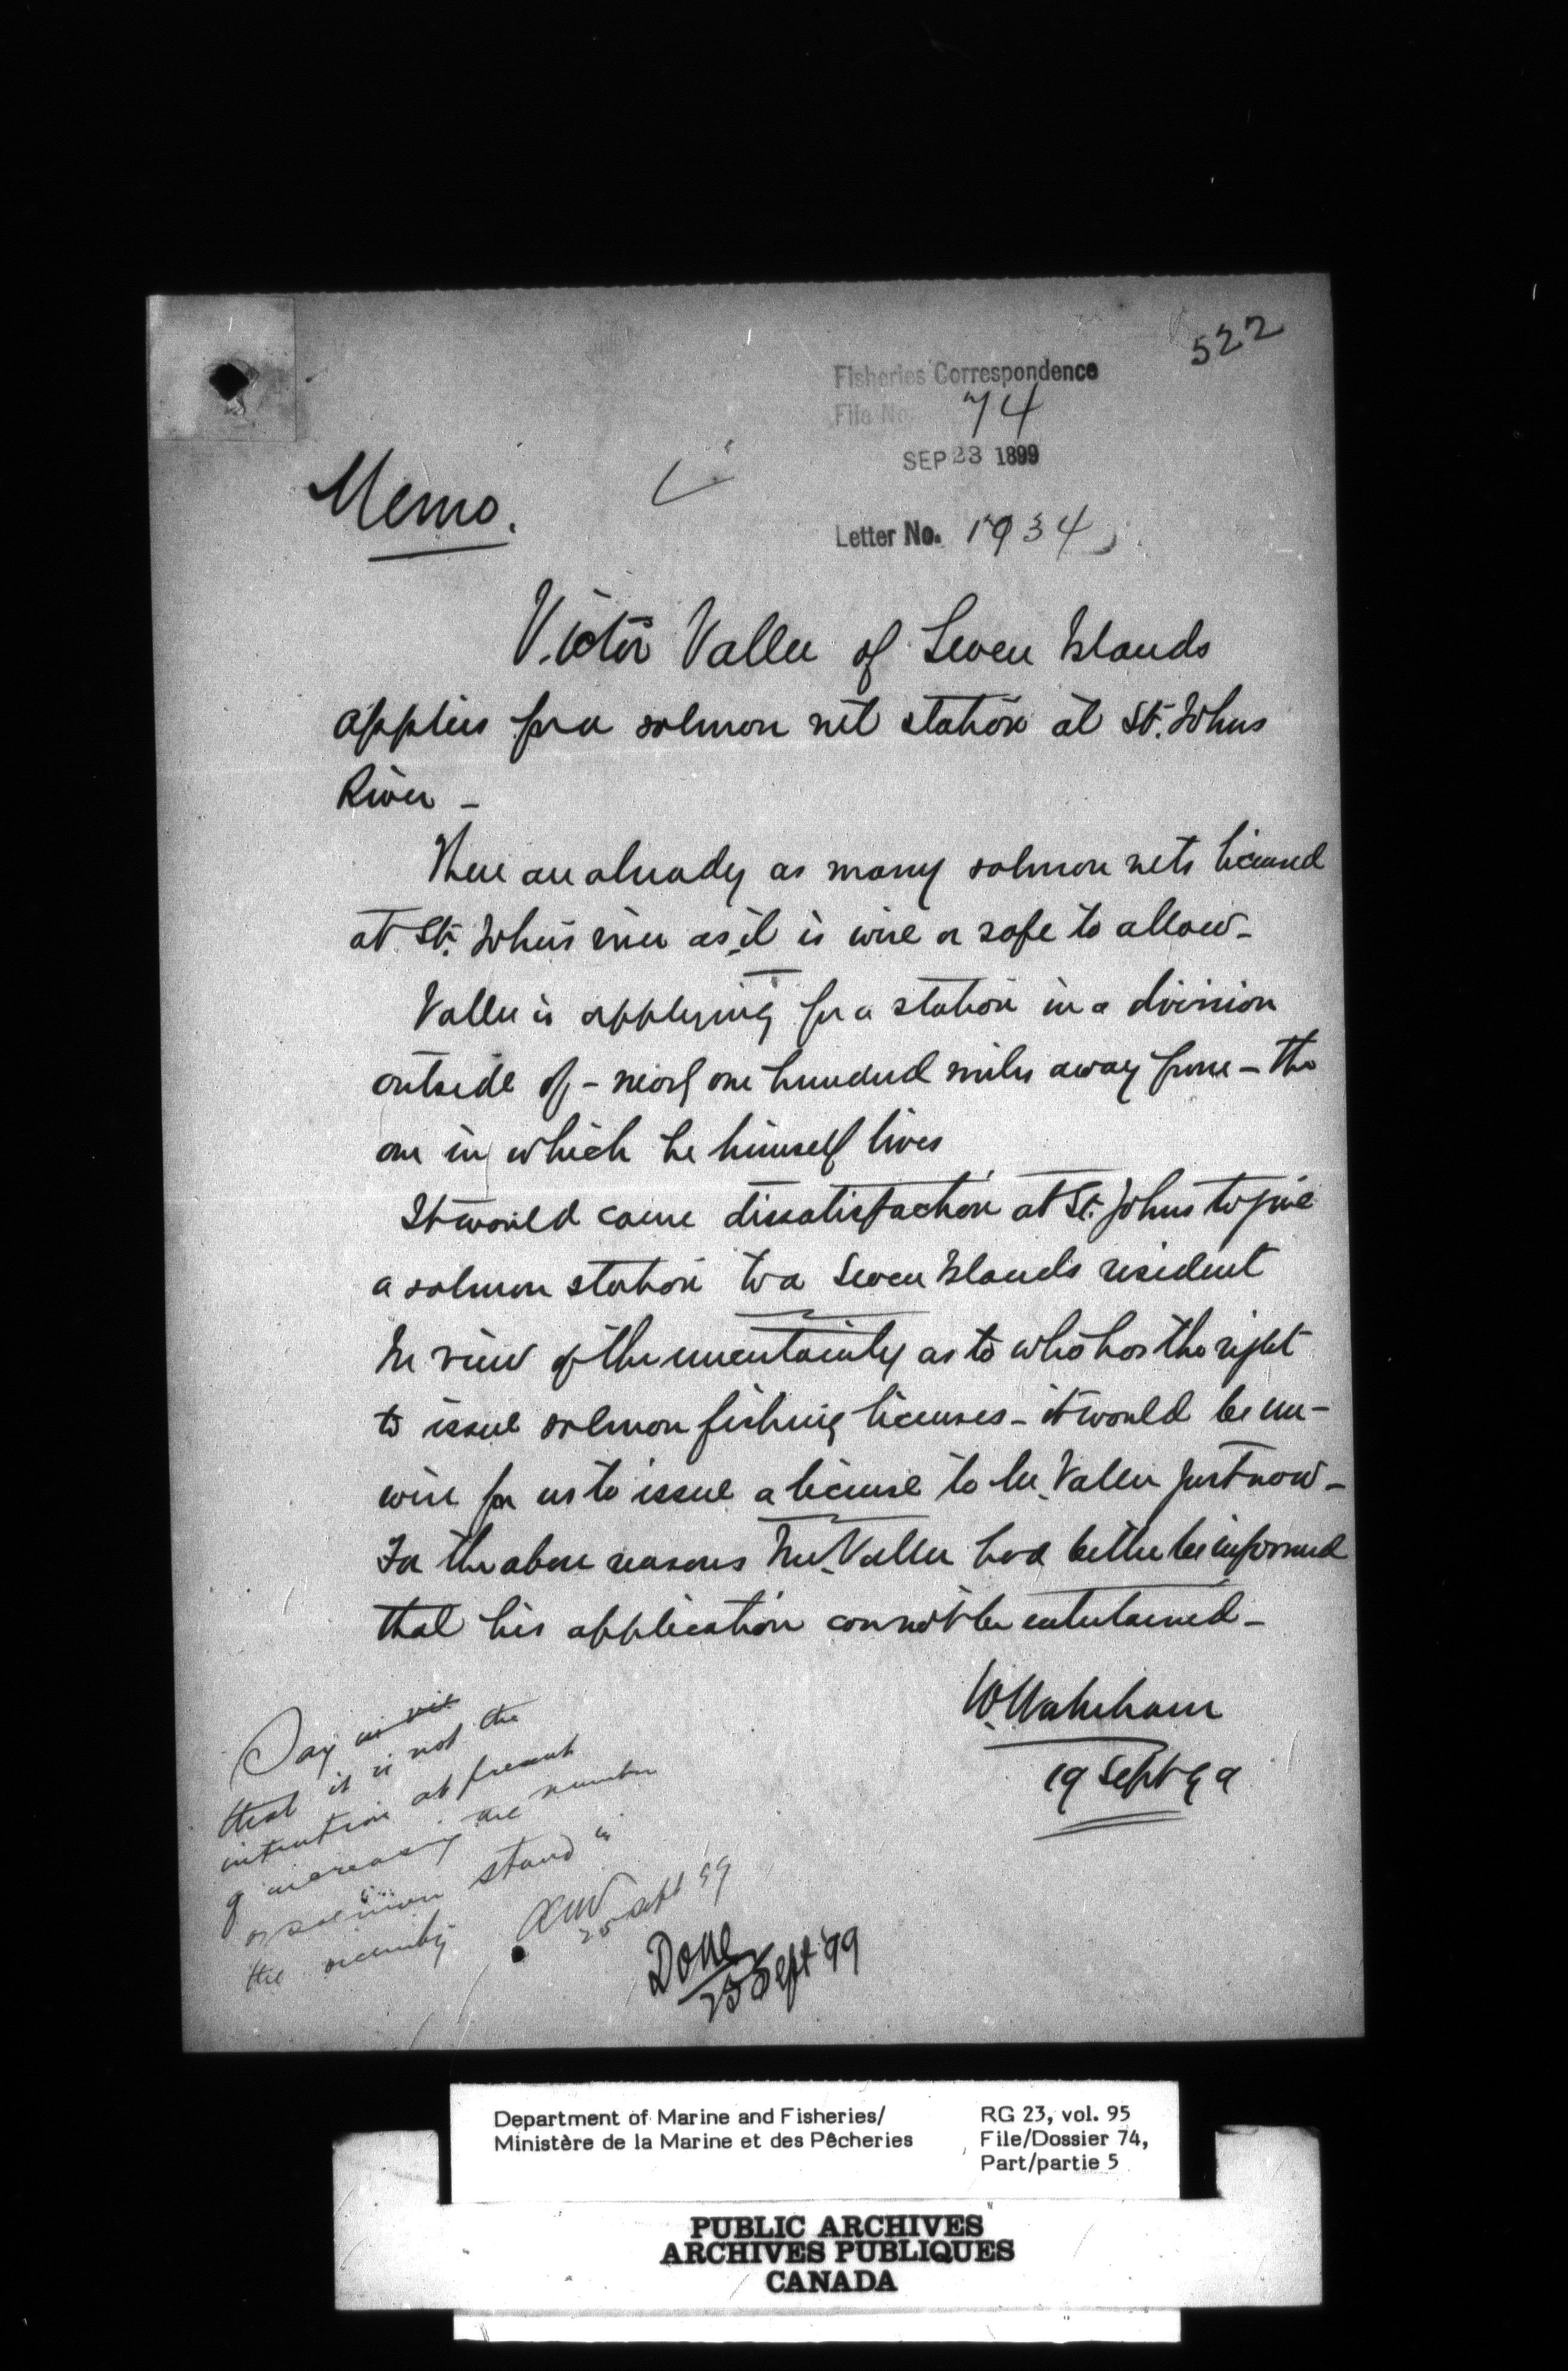 522
Fisheries Correspondence
File No. 74
SEP 23 1899
Letter No. 1934
Memo.
Victor Vallee of Seven Islands
applies for a salmon net station at St. Johns
River -
There are already as many salmon nets licensed
at St. John's river as it is wise or safe to allow -
Vallee is applying for a station in a division
outside of - nearly one hundred miles away from - the
one in which he himself lives
It would cause dissatisfaction at St. Johns to give
a salmon station to a Seven Islands resident
In view of the uncertainty as to who has the right
to issue salmon fishing licenses - it would be un-
wise for us to issue a license to Mr. Vallee just now -
For the above reasons Mr. Vallee had better be informed
that his application cannot be entertained -
W. Wakeham
19 Sept 99
Say
that it is not the
intention at present
of increasing the number
of salmon stand in
the vicinity
25 Sept 99
Done
25 Sept '99
Department of Marine and Fisheries/
Ministère de la Marine et des Pêcheries
RG 23, vol. 95
File/Dossier 74,
Part/partie 5
PUBLIC ARCHIVES
ARCHIVES PUBLIQUES
CANADA